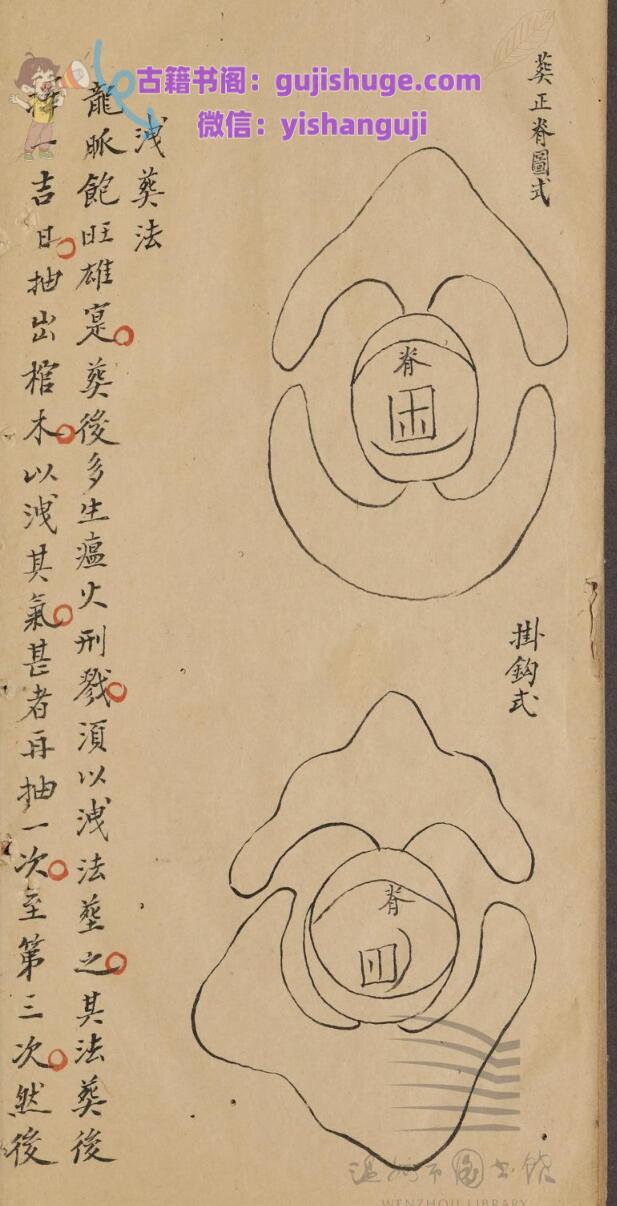 古籍书阁：gujishuge.com
微信：yishanguji
葬正脊圖式
脊
掛鈎式
脊
洩葬法
龍脈飽旺雄寔葬後多生瘟火刑戮須以洩法塟之其法葬後
一吉日抽出棺木以洩其氣甚者再抽一次至第三次然後
温州市图书馆
WENZHOU LIBRARY